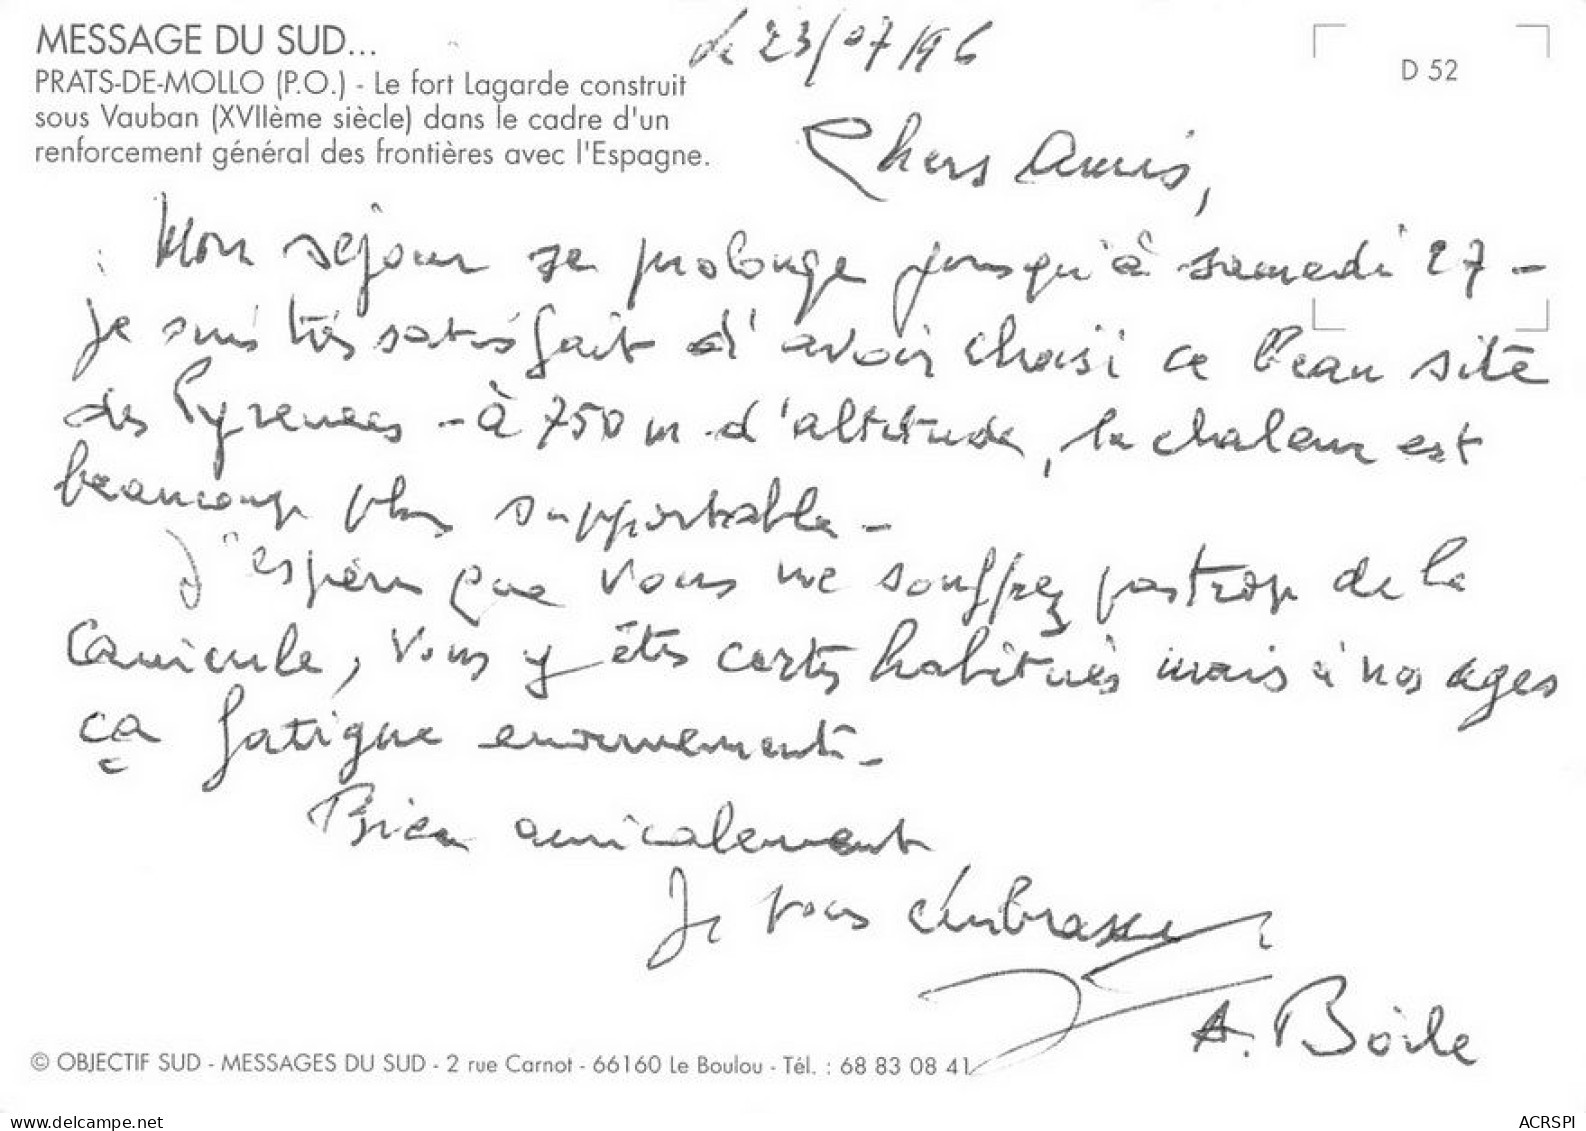 MESSAGE DU SUD...
PRATS-DE-MOLLO (P.O.) - Le fort Lagarde construit
sous Vauban (XVIIème siècle) dans le cadre d'un
renforcement général des frontières avec l'Espagne.
D 52
le 23/07/96
Chers Amis,
Mon séjour se prolonge jusqu'à samedi 27 -
je suis très satisfait d'avoir choisi ce beau site
des Pyrenees - à 750 m d'altitude, la chaleur est
beaucoup plus supportable -
J'espère que vous ne souffrez pas trop de la
Canicule, vous y êtes certes habitués mais à nos ages
ça fatigue enormement -
Bien amicalement
Je vous embrasse
A.
© OBJECTIF SUD - MESSAGES DU SUD - 2 rue Carnot - 66160 Le Boulou - Tél. : 68 83 08 41
delcampe.net
ACRSPI